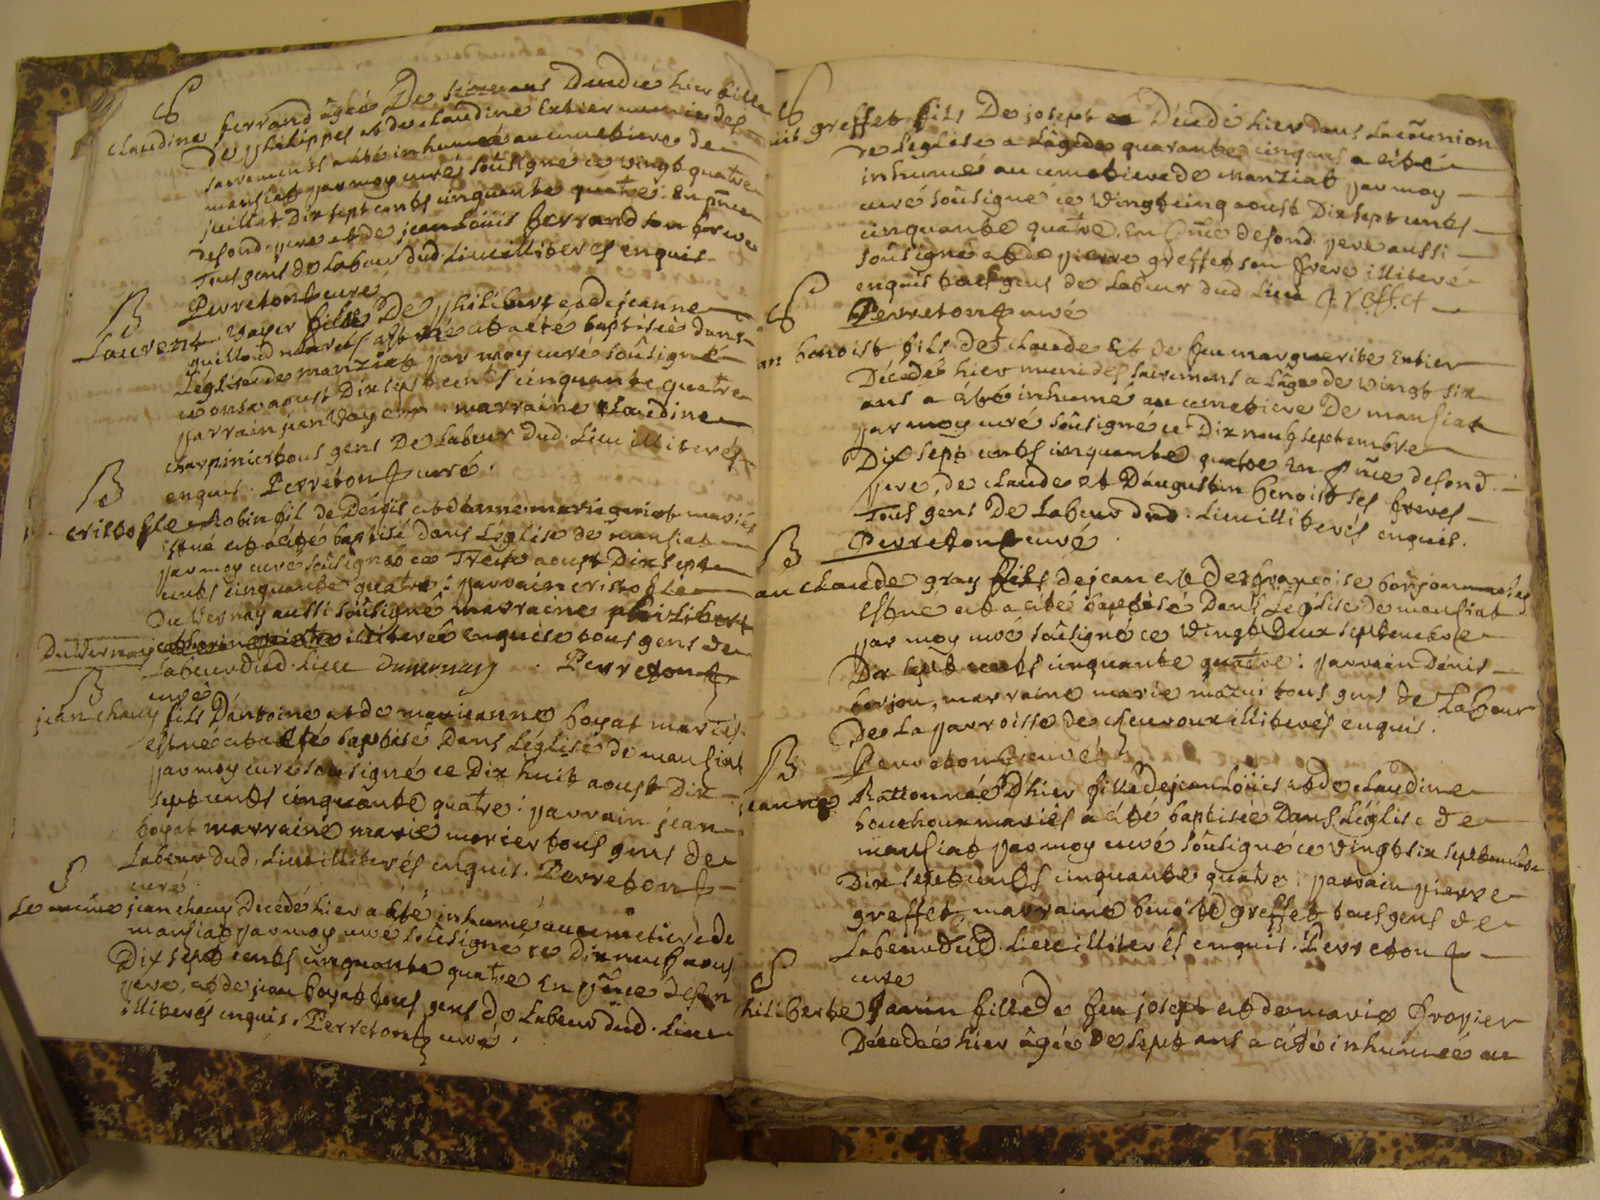 S
claudine ferrand âgée De six ans Decedée hier fille
De philippes et de claudine Extier munie des
sacrements a été inhumée au cimetiere de
mansiat par moy curé soûsigné ce vingt quatre
juillet Dix sept cents cinquante quatre: En pñce
deson d. pere et de jean Loüis ferrand son frere
Tous gens de Labeur dud. Lieu illiterés enquis
Perreton curé
B
Laurent Vayer fils De philibert et de jeanne
guilloud mariés est né et a été baptisé dans
Léglise de manziat par moy curé soûsigné
ce onze aoust Dix sept cents cinquante quatre
parrain jean Vayer marraine claudine
charpinet tous gens De Labeur dud. Lieu illiterés
enquis. Perreton curé.
B
cristofle Robin fil de Denis et danne marie mariés
est né et a été baptisé dans Léglise de mansiat
par moy curé soûsigné ce Treize aoust Dix sept
cents cinquante quatre: parrain cristofle
Du Vernay aussi soûsigné marraine philiberte
illiterée enquise tous gens de
Duvernay
Labeur dud. Lieu duvernay. Perreton
curé
B
jean chacuy fils Dantoine et de marianne boyat mariés
est né et a été baptisé Dans Léglise de mansiat
par moy curé soûsigné ce Dix huit aoust Dix
sept cents cinquante quatre: parrain jean
boyat marraine marie morier tous gens de
Labeur dud. Lieu illiterés enquis. Perreton
curé
S
Le même jean chacuy Decedé hier a été inhumé au cimetiere de
mansiat par moy curé soûsigné ce Dix neuf aoust
Dix sept cents cinquante quatre En pñce deson
pere, et de jean boyat tous gens de Labeur dud. Lieu
illiterés enquis. Perreton curé.
S
greffet fils De joseph Décédé hier dans La cõmunion
de Léglise a Lâge de quarante cinq ans a été
inhumé au cimetiere de manziat par moy
curé soûsigné ce Vingt cinq aoust Dix sept cents
cinquante quatre. En pñce deson d. pere aussi
soûsigné et de pierre greffet son frere illiteré
enquis tous gens de Labeur dud. Lieu greffet
Perreton curé
S
benoist fils de claude Et de feu marguerite Extier
Décédé hier muni des sacrements a Lâge de vingt six
ans a été inhumé au cimetiere De mansiat
par moy curé soûsigné ce Dix neuf septembre
Dix sept cents cinquante quatre En pñce deson d.
pere, de claude et Daugustin benoist ses freres
Tous gens De Labeur dud. Lieu illiterés enquis.
Perreton curé.
B
claude gray fils de jean et De françoise bonjon mariés
est né et a été baptisé Dans Léglise de mansiat
par moy curé soûsigné ce Vingt Deux septembre
Dix sept cents cinquante quatre: parrain Dénis
borjon, marraine marie mazui tous gens de Labeur
De La parroisse de cheuroux illiterés enquis.
Perreton curé
B
jeanne Rattonnée D'hier fille de jean Loüis et de claudine
bouchoux mariés a été baptisée Dans Léglise de
mansiat par moy curé soûsigné ce vingt six septembre
Dix sept cents cinquante quatre: parrain pierre
greffet, marraine benoite greffet tous gens de
Labeur dud. Lieu illiterés enquis. Perreton
curé
S
philiberte janin fille de feu joseph et de marie froyier
Décédée hier âgée De sept ans a été inhumée au